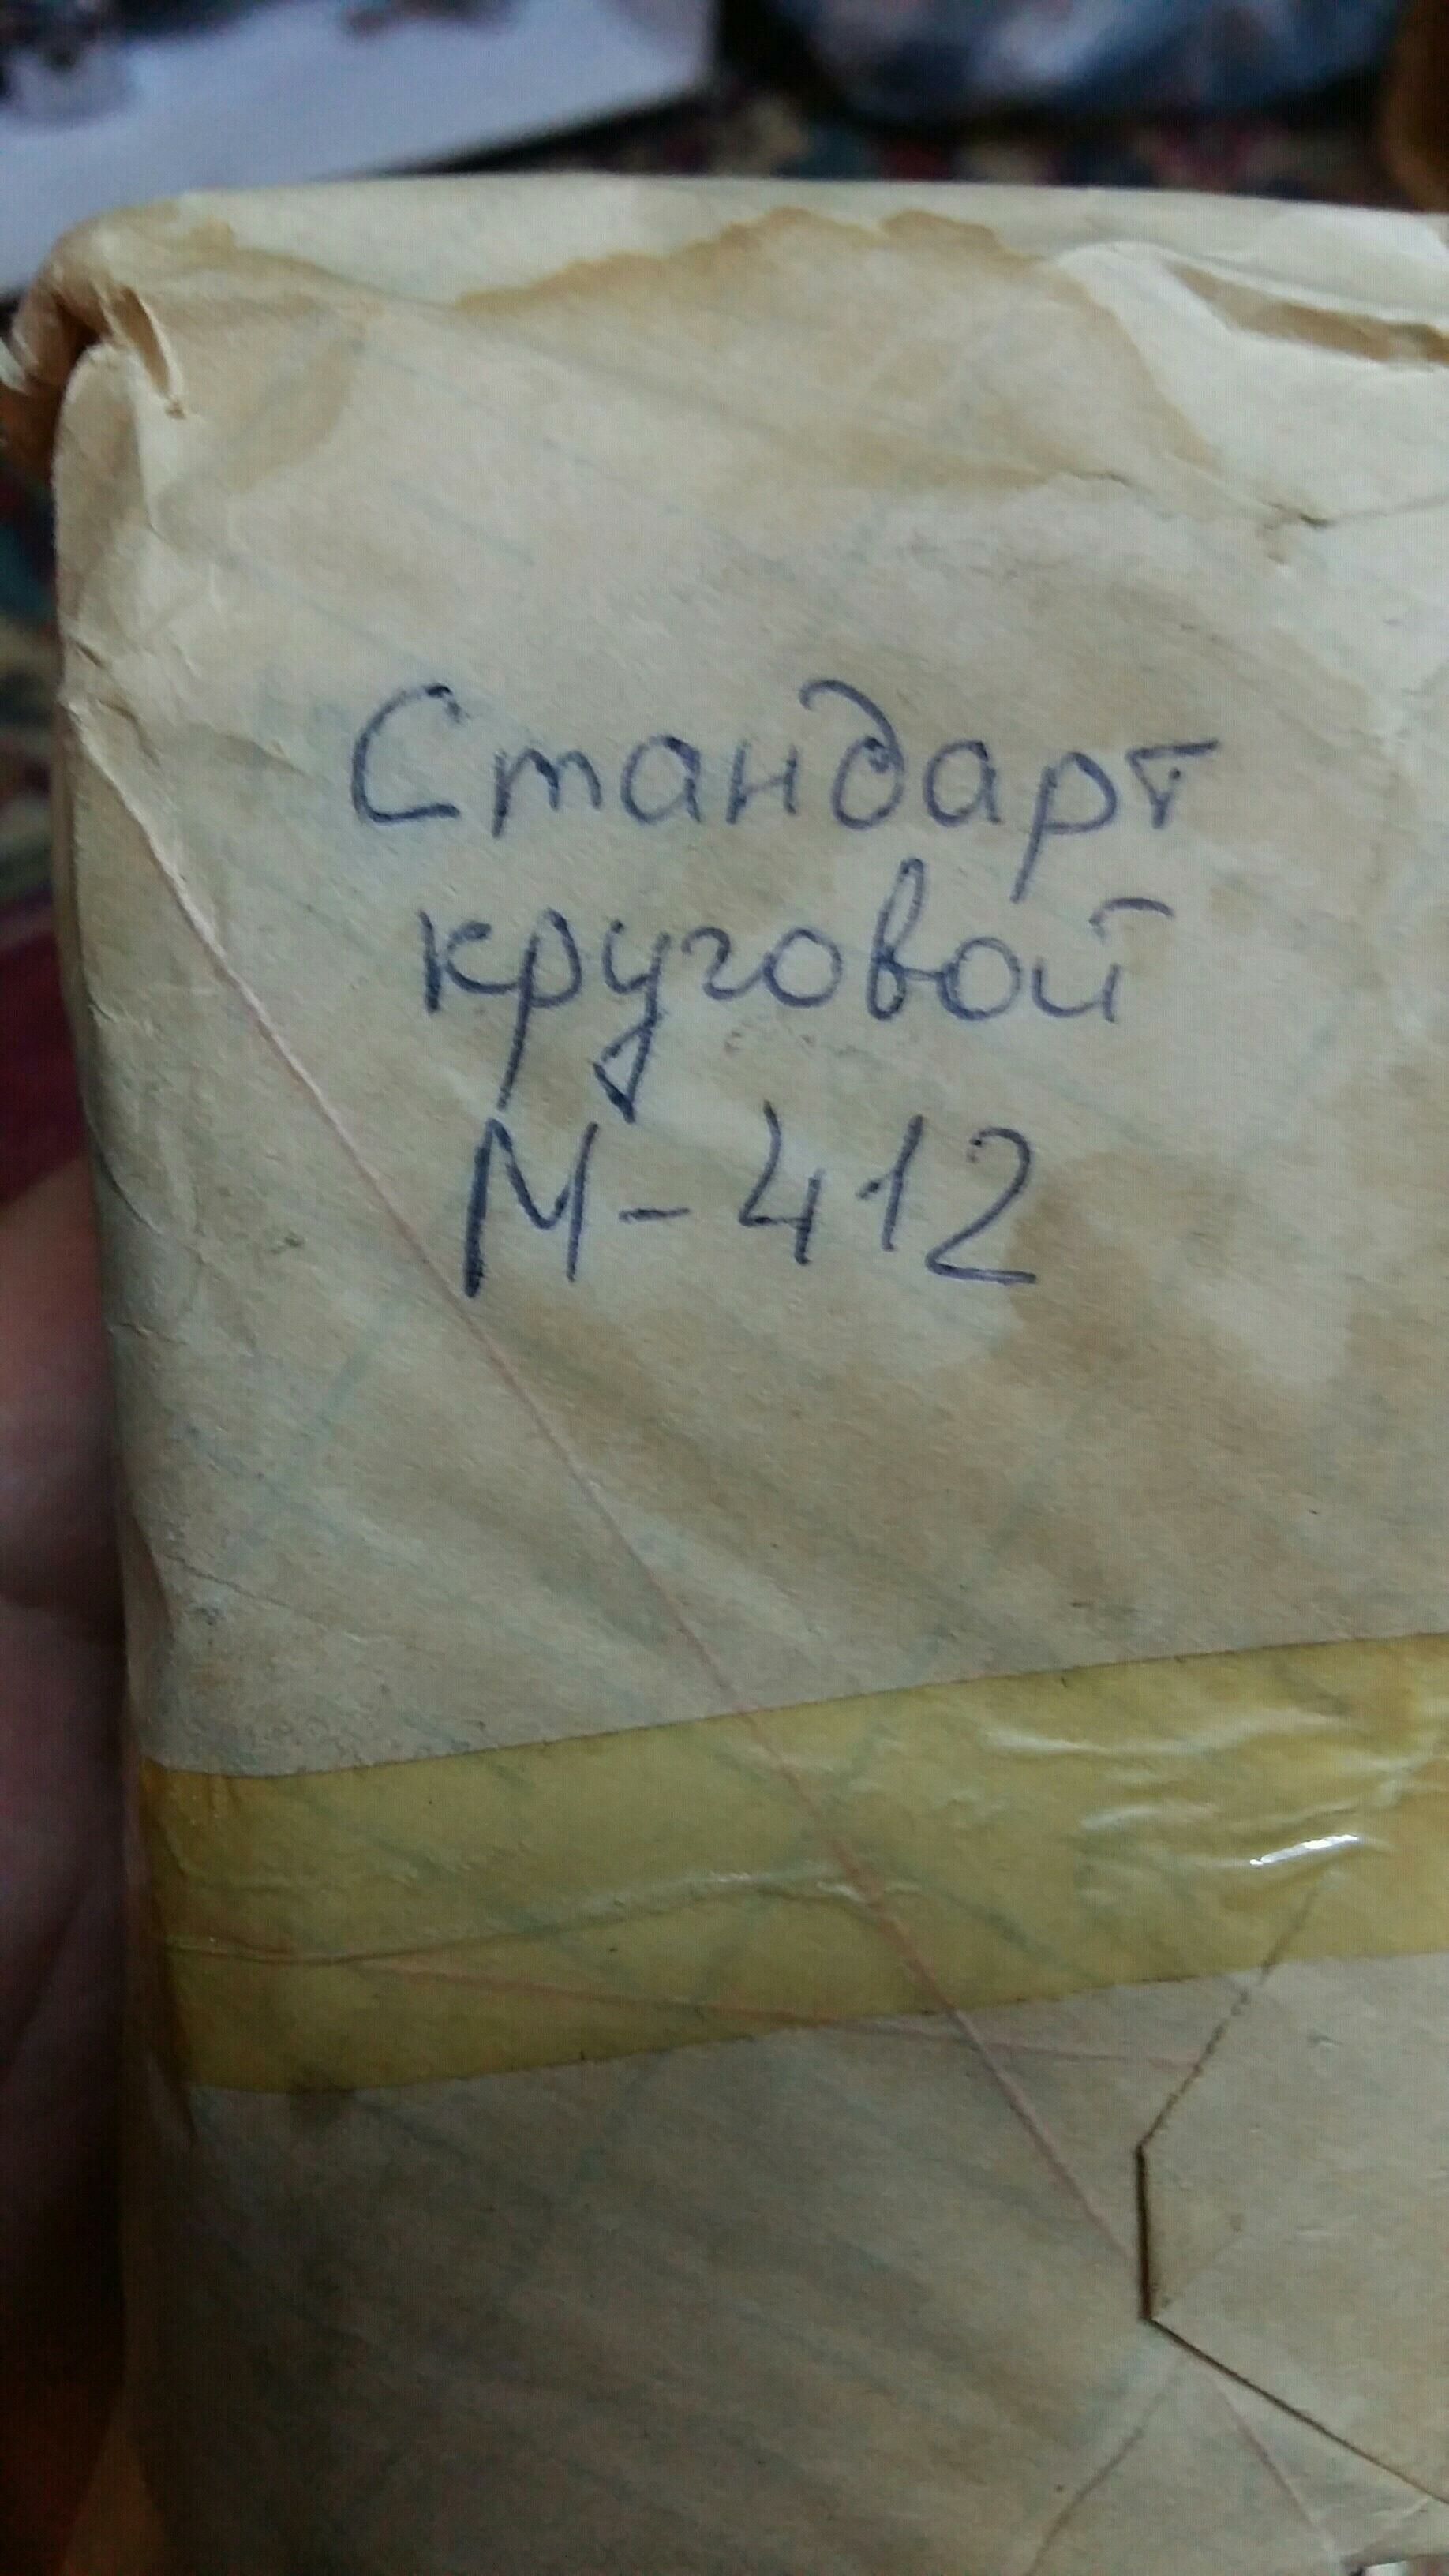 Стандарт
круговой
М-412